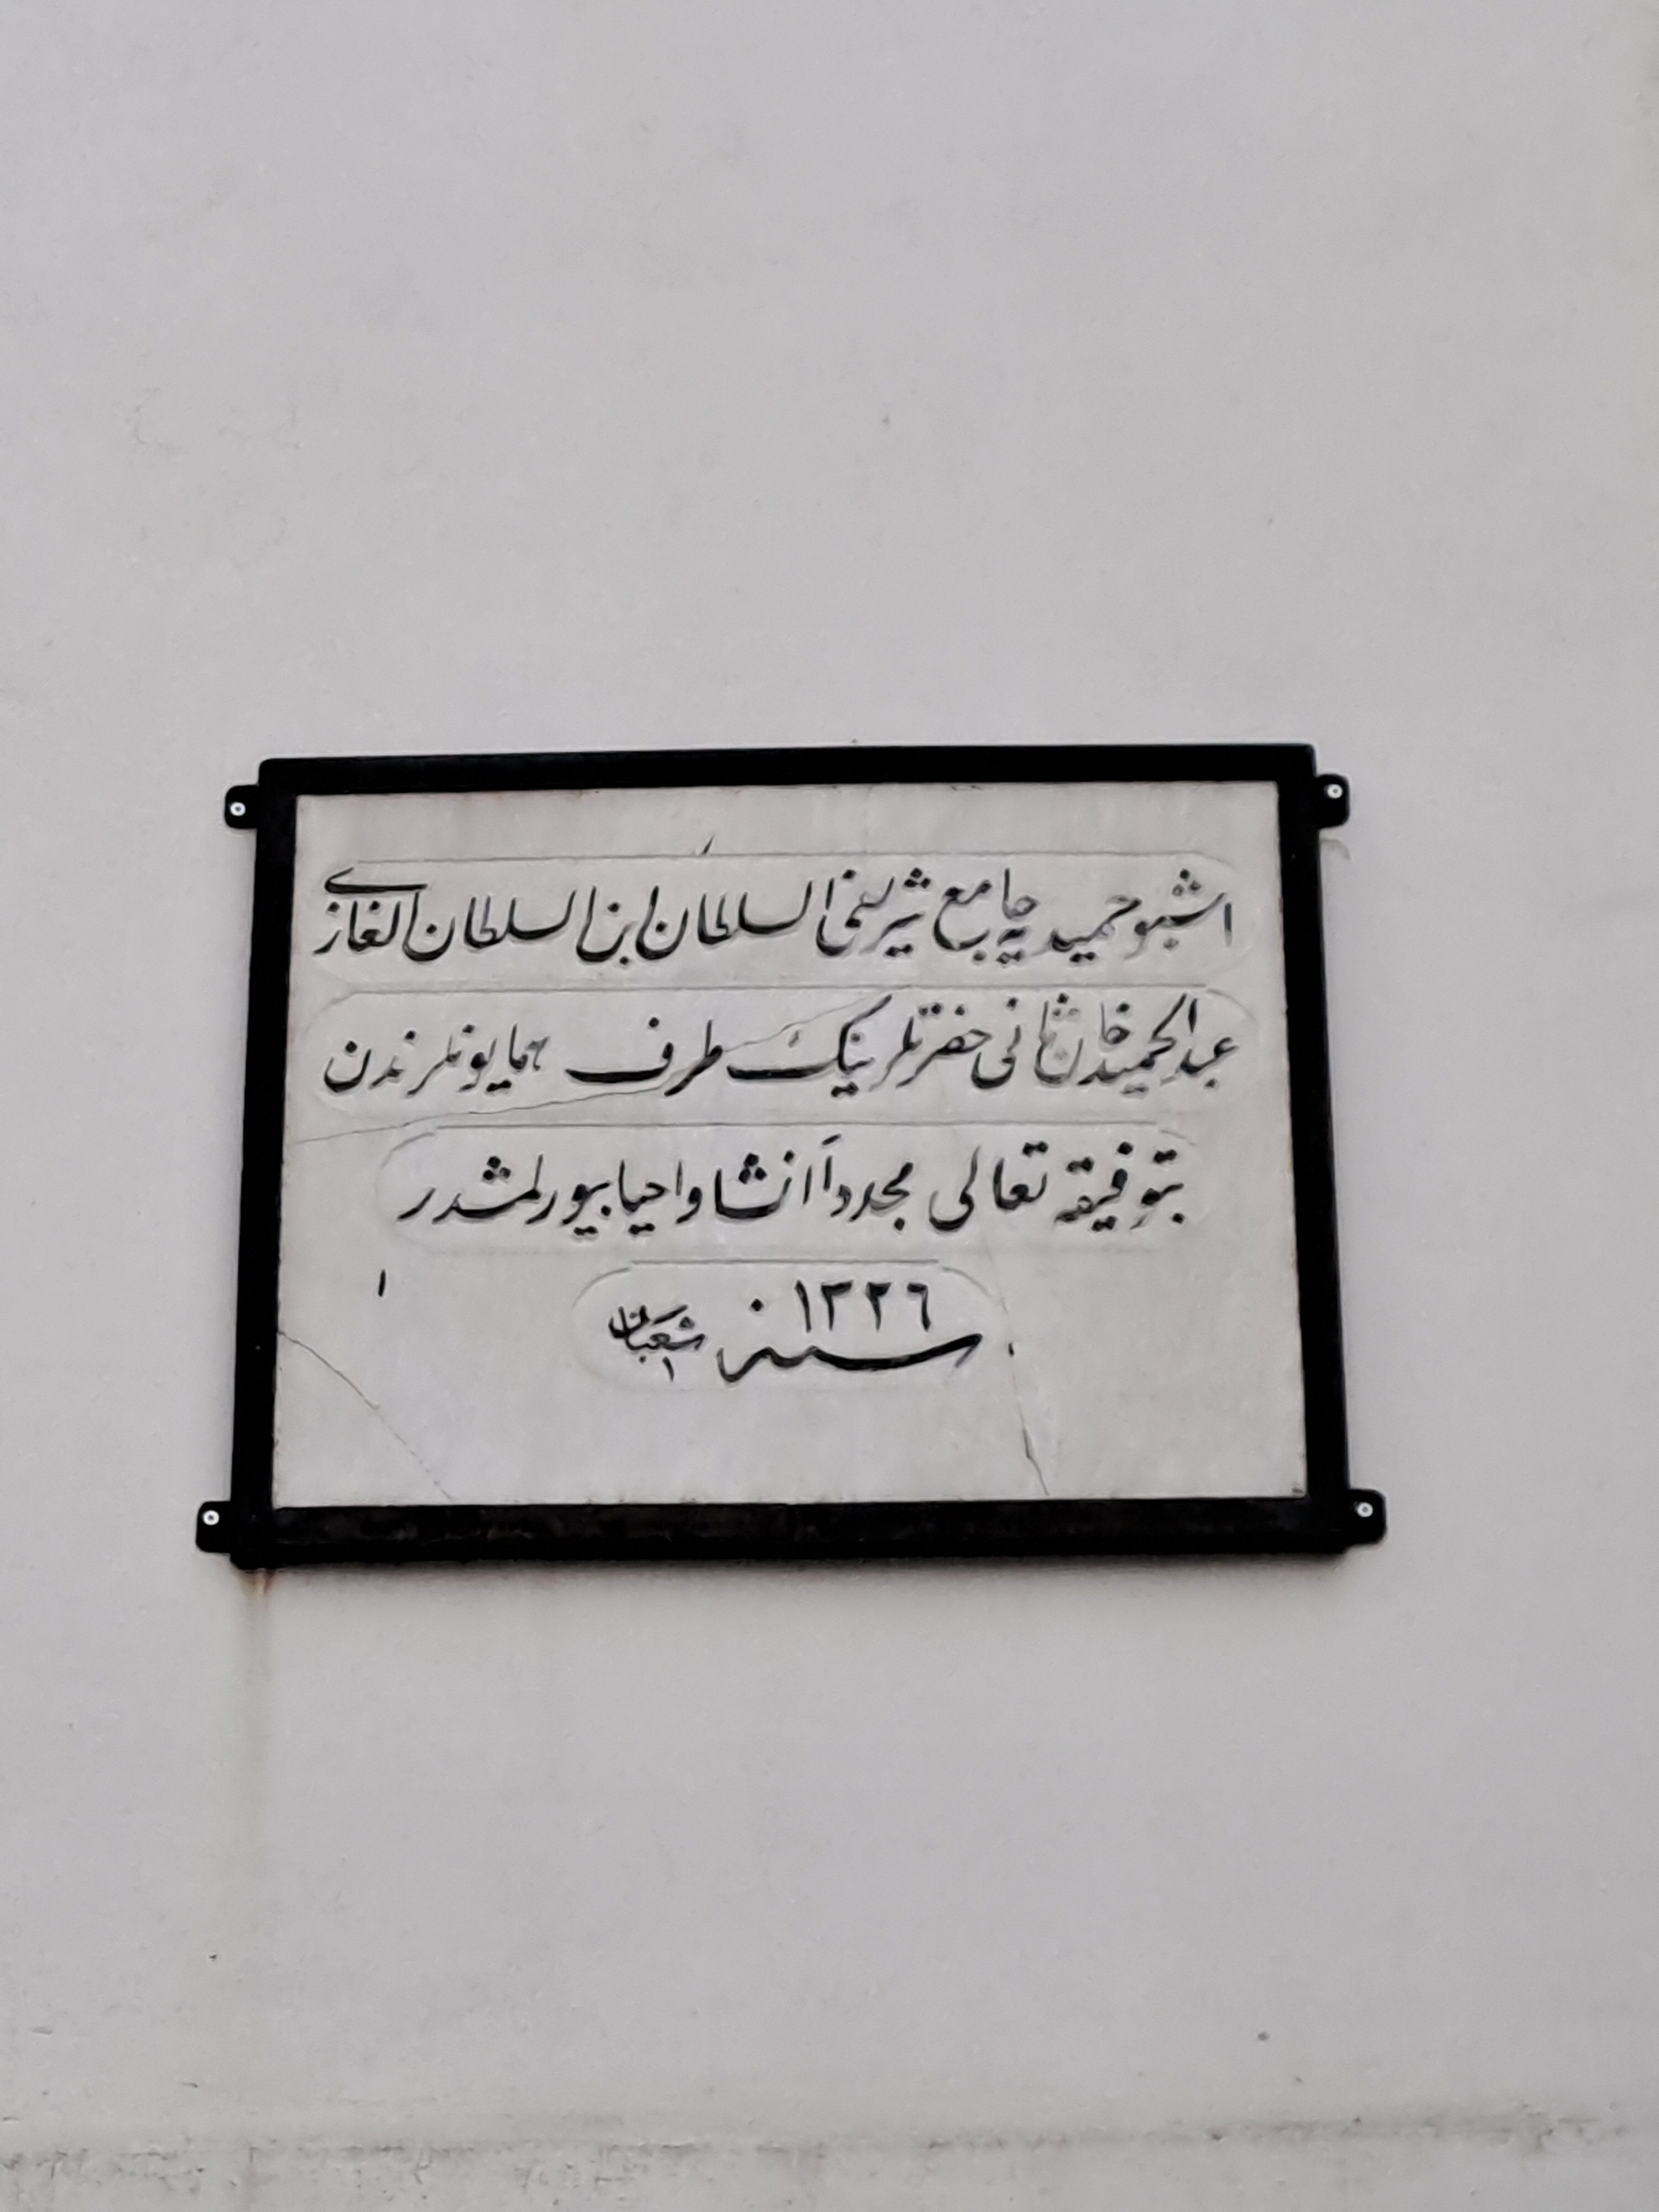 اشبو حميديه جامع شريفى السلطان ابن السلطان الغازى
عبد الحميد خان ثانى حضرتلرينك طرف همايونلرندن
بتوفيقه تعالى مجدداً انشا و احيا بيورلمشدر
سنه ١٣٢٦ شعبان ١